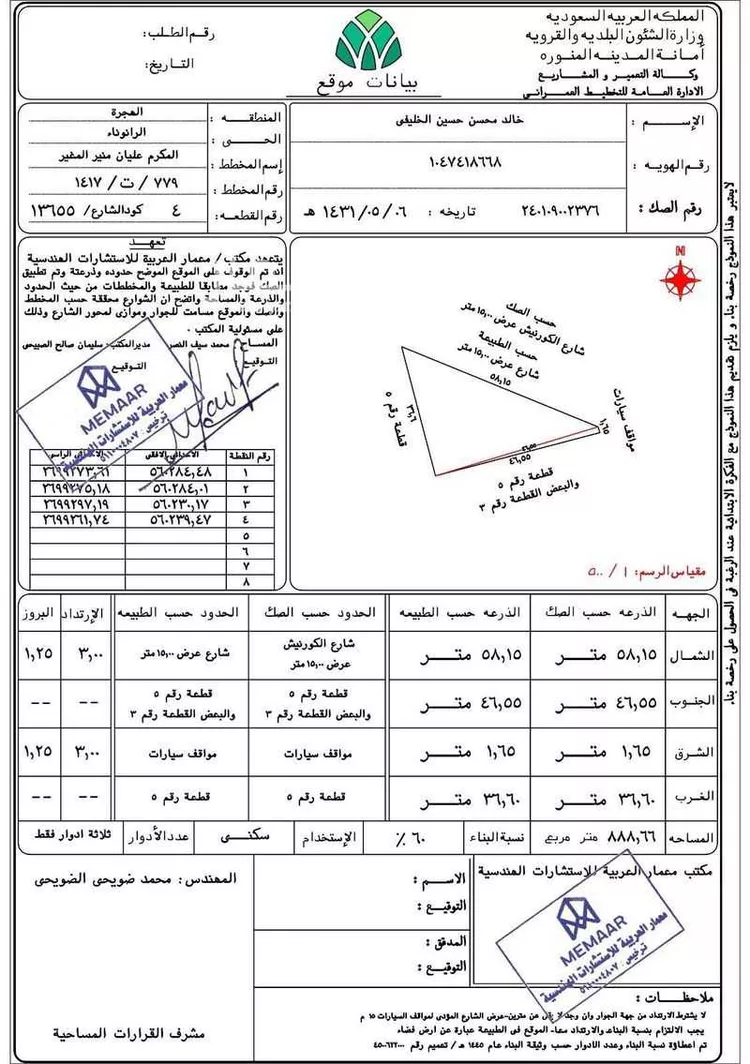 المملكه العربيه السعوديه
وزارة الشئون البلديه والقرويه
أمانة المدينه المنوره
وكالة التعمير و المشاريع
الادارة العامة للتخطيط العمرانى
بيانات موقع
رقم الطلب:
التاريخ:
الإسم : خالد محسن حسين الخليفى
رقم الهويه : ١٠٤٧٤١٨٦٦٨
رقم الصك : ٢٤٠١٠٩٠٠٢٣٧٦ تاريخه : ١٤٣١/٠٥/٠٦ هـ
المنطقه : الهجرة
الحى : الرانوناء
إسم المخطط : المكرم عليان منير المغير
رقم المخطط : ٧٧٩ / ت / ١٤١٧
رقم القطعه : ٤ كودالشارع/ ١٣٦٥٥
تعهد
يتعهد مكتب/ معمار العربية للاستشارات الهندسية
انه تم الوقوف على الموقع الموضح حدوده وذرعتة وتم تطبيق
الصك فوجد مطابقا للطبيعة والمخططات من حيث الحدود
والذرعة والمساحة واتضح ان الشوارع محققة حسب المخطط
والصك والموقع مسامت للجوار وموازى لمحور الشارع وذلك
على مسئولية المكتب ٠
المساح : محمد سيف النصر مديرالمكتب: سليمان صالح الصبيحي
التوقيع التوقيع
MEMAAR
معمار العربية للاستشارات الهندسية
رقم النقطة الاحداثى الافقى الاحداثى الراسى
١ ٥٦٠٢٨٤,٤٨ ٢٦٩٩٢٧٣,٦١
٢ ٥٦٠٢٨٤,٠١ ٢٦٩٩٢٧٥,١٨
٣ ٥٦٠٢٣٠,١٧ ٢٦٩٩٢٩٧,١٩
٤ ٥٦٠٢٣٩,٤٧ ٢٦٩٩٢٦١,٧٤
٥
٦
٧
٨
N
حسب الصك
شارع الكورنيش عرض ١٥,٠٠ متر
حسب الطبيعة
شارع عرض ١٥,٠٠ متر
٥٨,١٥
مواقف سيارات
١,٦٥
٣٦,٦
قطعة رقم ٥
٤٦,٥٥
٤٦,٥٥
قطعة رقم ٥
والبعض القطعة رقم ٣
مقياس الرسم: ١ / ٥٠٠
الجهه الذرعه حسب الصك الذرعه حسب الطبيعه الحدود حسب الصك الحدود حسب الطبيعه الإرتداد البروز
الشمال ٥٨,١٥ متر ٥٨,١٥ متر شارع الكورنيش عرض ١٥,٠٠ متر شارع عرض ١٥,٠٠ متر ٣,٠٠ ١,٢٥
الجنوب ٤٦,٥٥ متر ٤٦,٥٥ متر قطعة رقم ٥ والبعض القطعة رقم ٣ قطعة رقم ٥ والبعض القطعة رقم ٣ -- --
الشرق ١,٦٥ متر ١,٦٥ متر مواقف سيارات مواقف سيارات ٣,٠٠ ١,٢٥
الغرب ٣٦,٦٠ متر ٣٦,٦٠ متر قطعة رقم ٥ قطعة رقم ٥ -- --
المساحه ٨٨٨,٦٦ متر مربع نسبة البناء ٦٠ ٪ الإستخدام سكنى عدد الأدوار ثلاثة ادوار فقط
مكتب معمار العربية للإستشارات الهندسية
MEMAAR
معمار العربية للاستشارات الهندسية
الاسم :
التوقيع :
المدقق :
التوقيع :
المهندس: محمد ضويحى الضويحى
مشرف القرارات المساحية
ملاحظات :
لا يشترط الارتداد من جهة الجوار وان وجد لا يقل عن مترين-عرض الشارع المؤدى لمواقف السيارات ١٥ م
يجب الالتزام بنسبة البناء والارتداد معا- الموقع فى الطبيعة عبارة عن ارض فضاء
تم اعطاؤة نسبة البناء وعدد الادوار حسب وثيقة البناء عام ١٤٤٥ هـ / تعميم رقم
لايعتبر هذا النموذج رخصة بناء. و يلزم تقديم هذا النموذج مع الفكرة الابتدائية عند الرغبة فى الحصول على رخصة بناء.